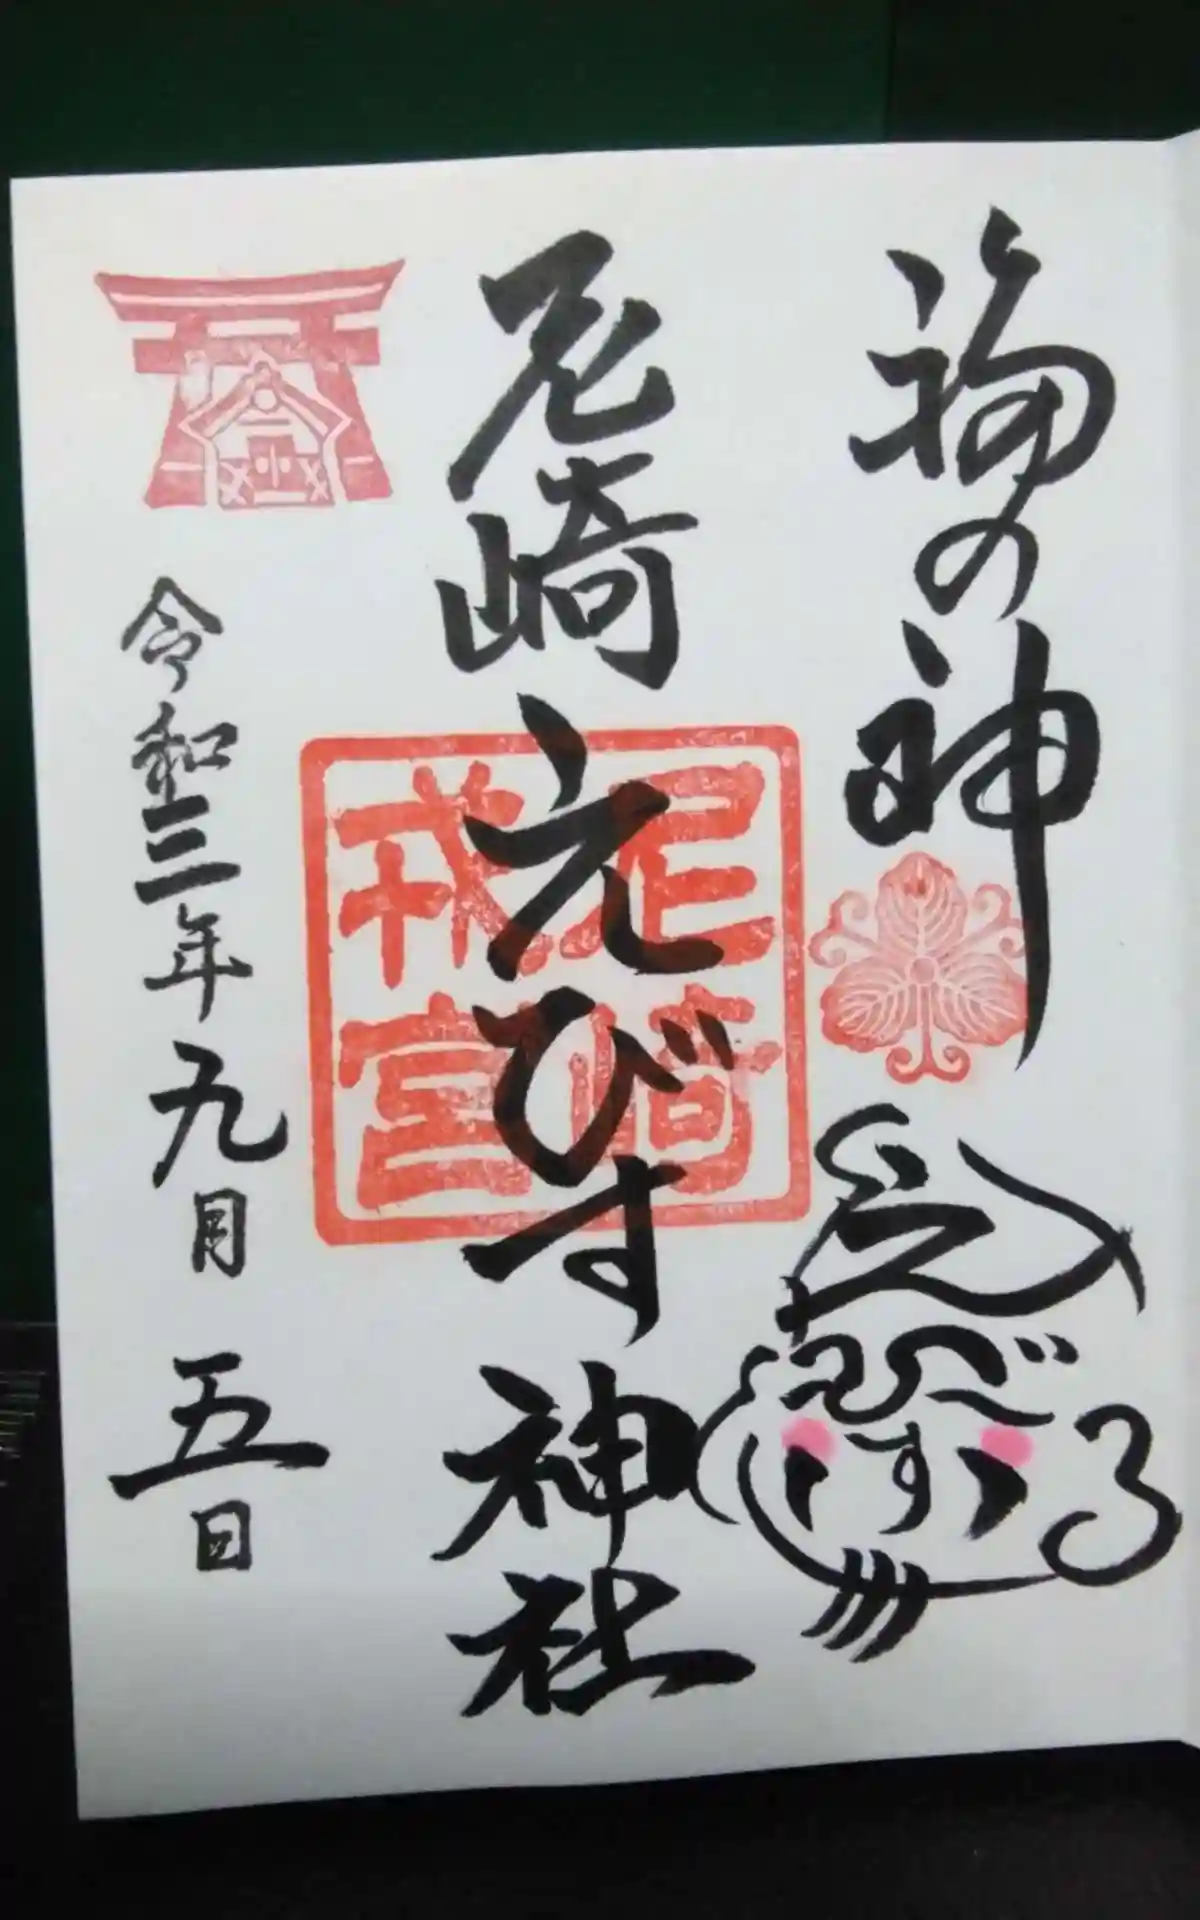 福の神
尼崎えびす神社
尼崎
戎宮
令和三年九月五日